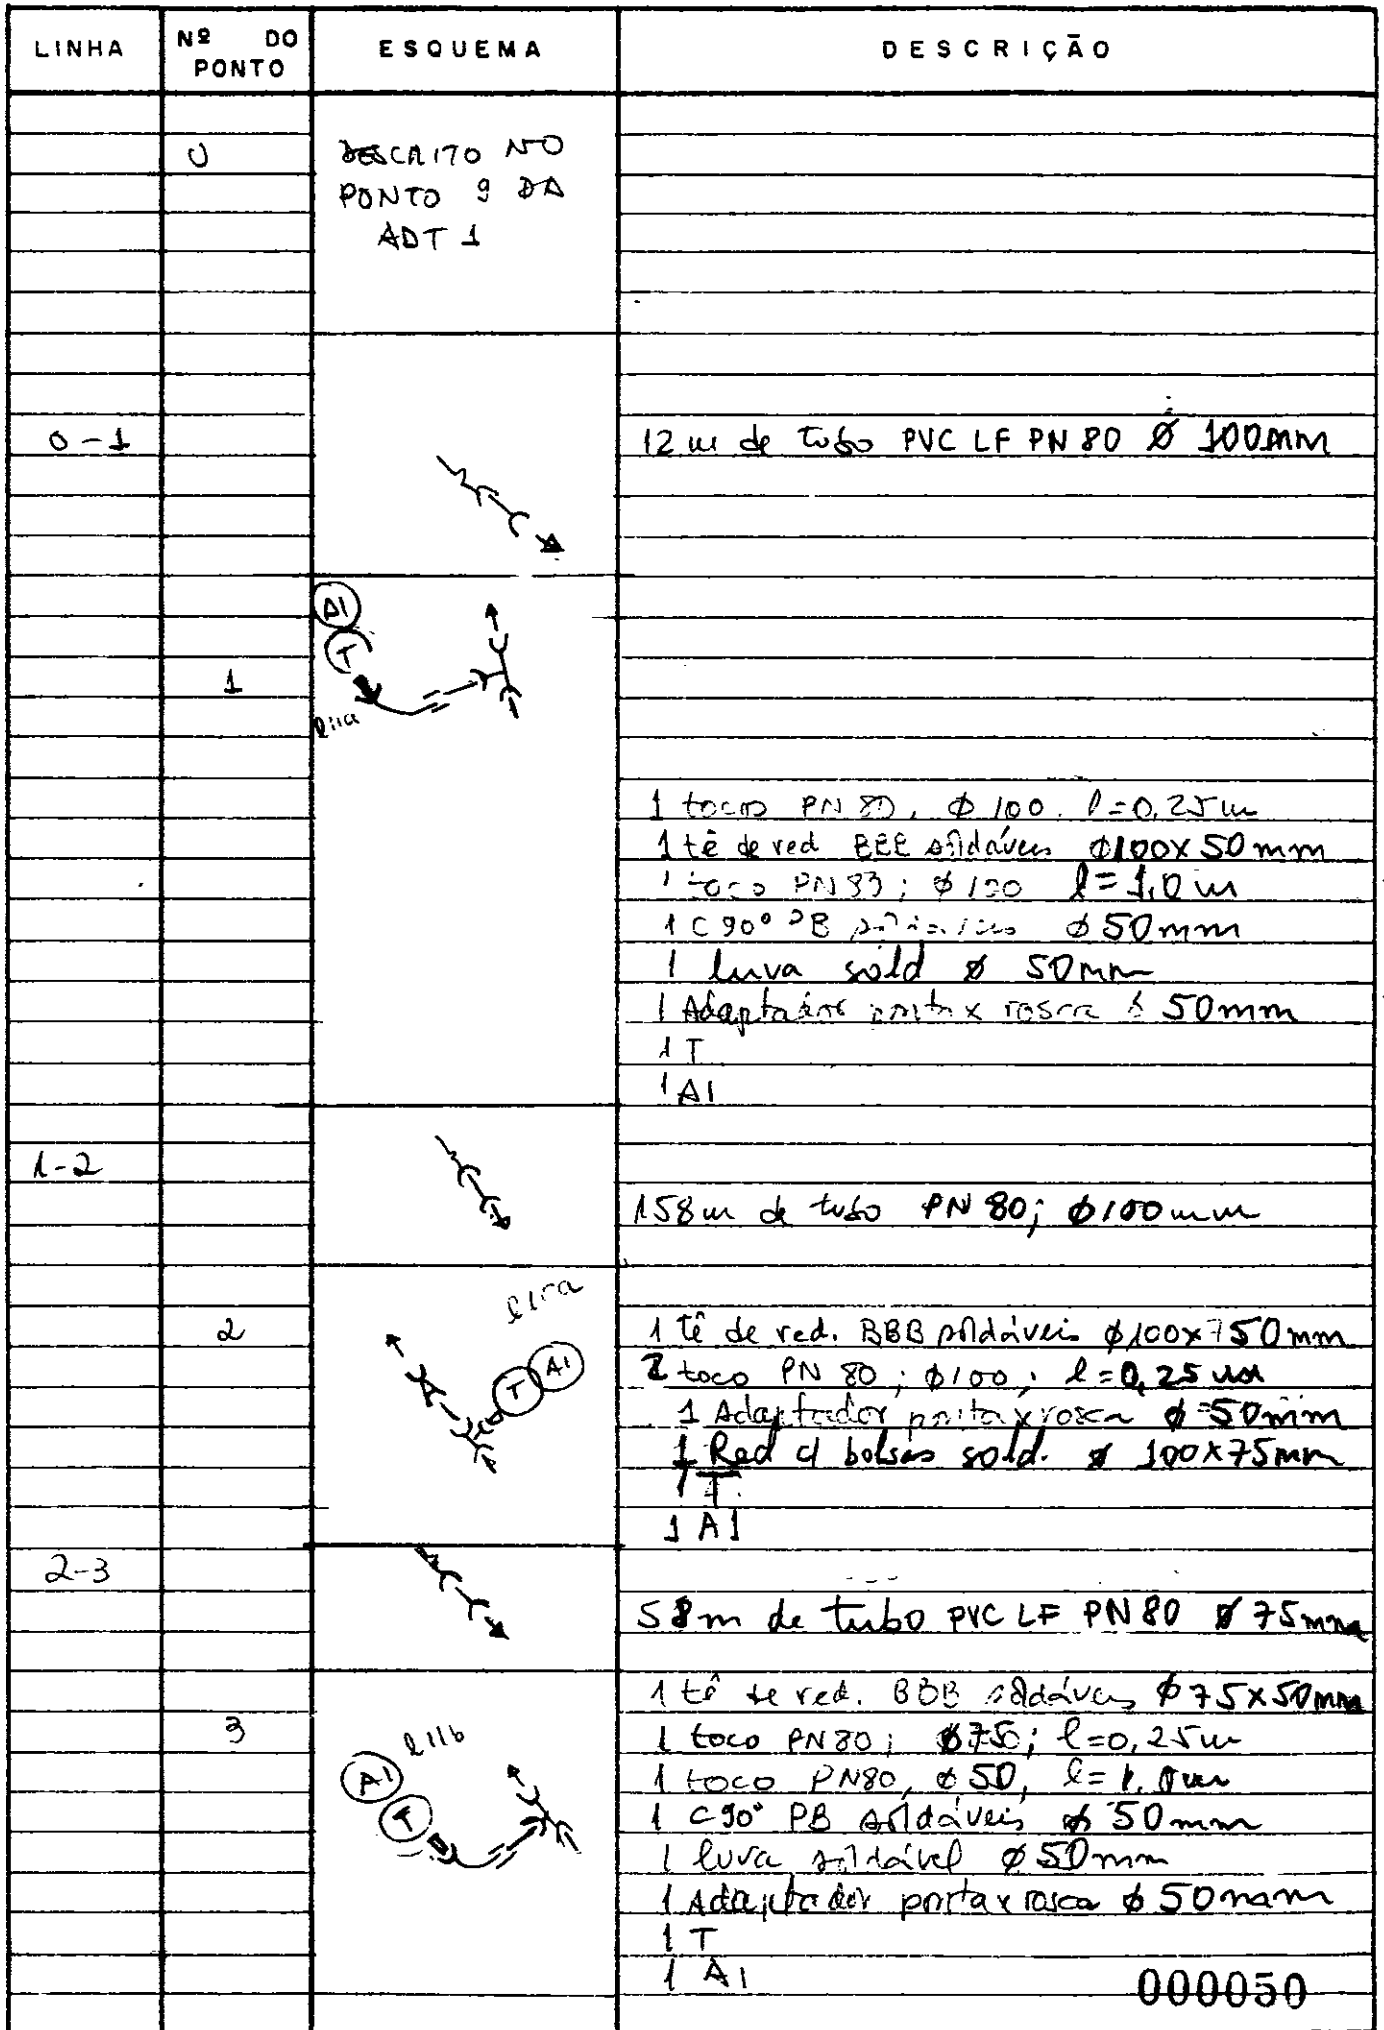 LINHA
Nº DO PONTO
ESQUEMA
DESCRIÇÃO
0
DESCRITO NO
PONTO 9 DA
ADT 1
0-1
12 m de tubo PVC LF PN 80 Ø 100mm
A1
T
1
l11a
1 toco PN 80, Ø 100. l=0,25m
1 tê de red BBB soldáveis Ø100x50mm
1 toco PN 80; Ø 100 l=1,0m
1 C 90° PB soldáveis Ø 50mm
1 luva sold Ø 50mm
1 Adaptador ponta x rosca Ø 50mm
1 T
1 A1
1-2
158m de tubo PN 80; Ø100mm
2
T A1
1 tê de red. BBB soldáveis Ø100x50mm
2 toco PN 80; Ø100; l=0,25m
1 Adaptador ponta x rosca Ø 50mm
1 Red c/ bolsas sold. Ø 100x75mm
1 T
1 A1
2-3
58m de tubo PVC LF PN 80 Ø 75mm
3
l11b
A1
T
1 tê de red. BBB soldáveis Ø75x50mm
1 toco PN80; Ø75; l=0,25m
1 toco PN80, Ø50, l=1,0m
1 C90° PB soldáveis Ø 50mm
1 luva soldável Ø50mm
1 Adaptador ponta x rosca Ø 50mm
1 T
1 A1
000050